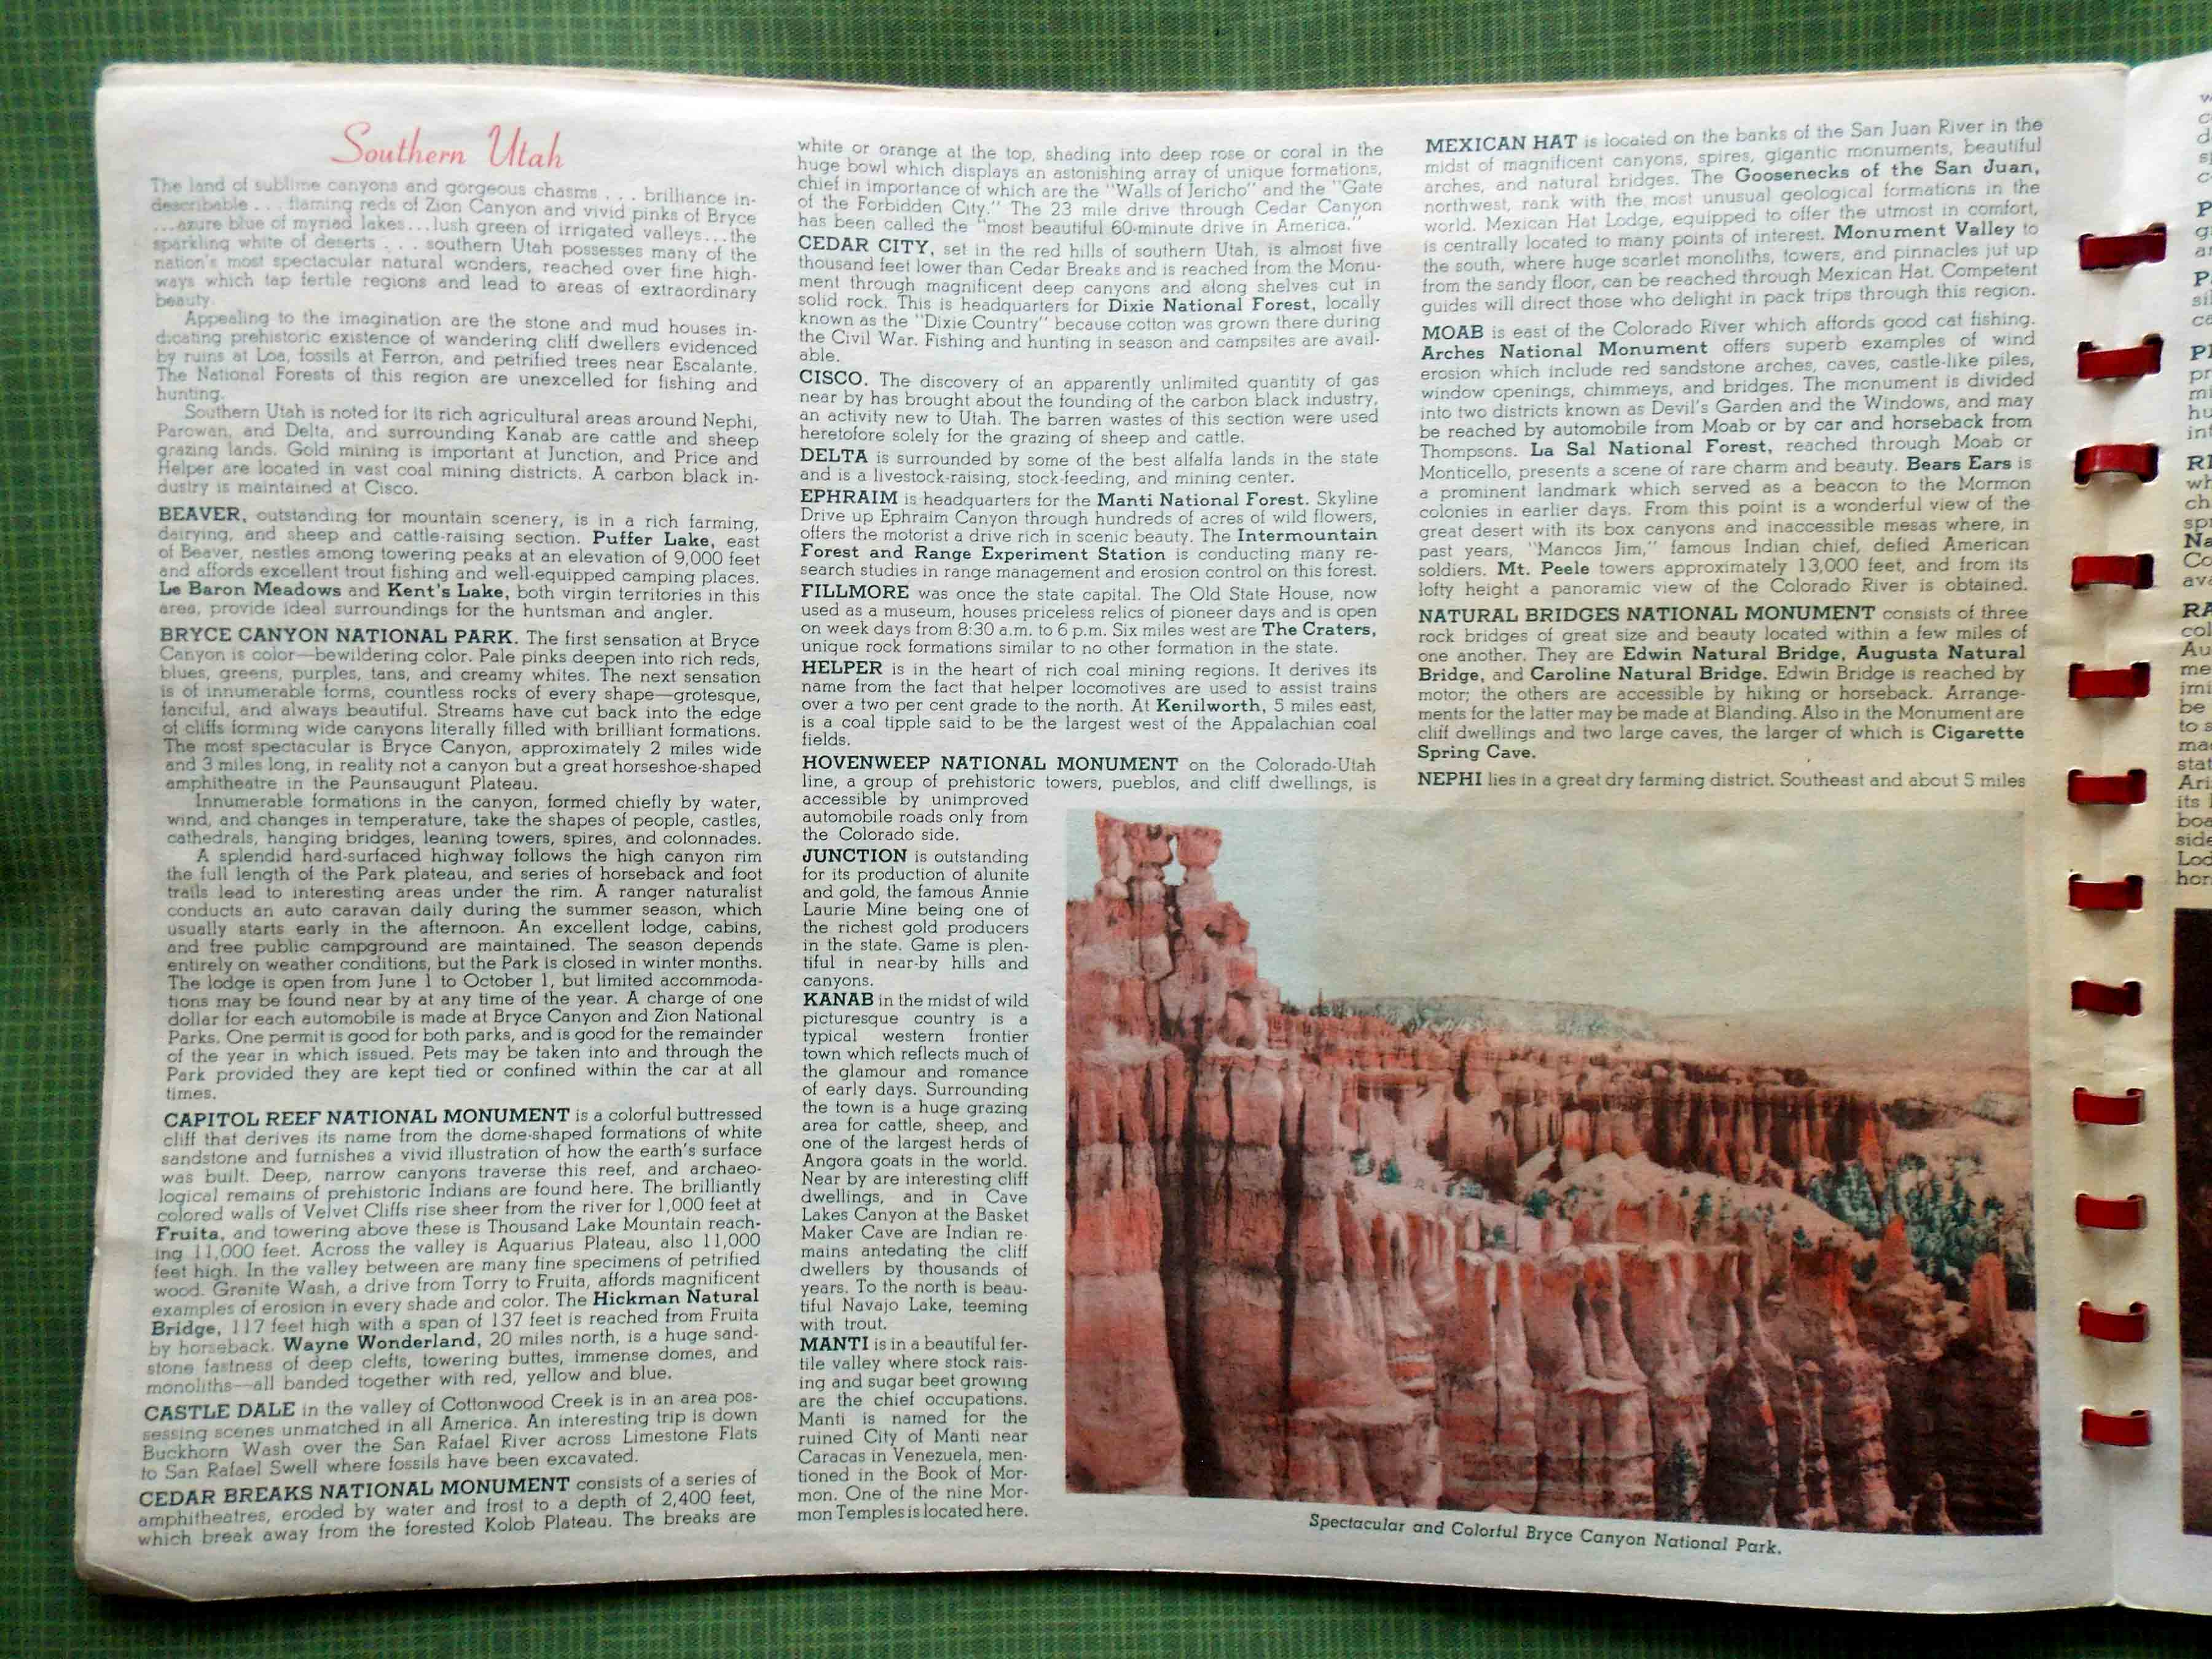 Southern Utah
The land of sublime canyons and gorgeous chasms . . . brilliance in-
describable . . . flaming reds of Zion Canyon and vivid pinks of Bryce
...azure blue of myriad lakes...lush green of irrigated valleys...the
sparkling white of deserts . . . southern Utah possesses many of the
nation's most spectacular natural wonders, reached over fine high-
ways which tap fertile regions and lead to areas of extraordinary
beauty.
Appealing to the imagination are the stone and mud houses in-
dicating prehistoric existence of wandering cliff dwellers evidenced
by ruins at Loa, fossils at Ferron, and petrified trees near Escalante.
The National Forests of this region are unexcelled for fishing and
hunting.
Southern Utah is noted for its rich agricultural areas around Nephi,
Parowan, and Delta, and surrounding Kanab are cattle and sheep
grazing lands. Gold mining is important at Junction, and Price and
Helper are located in vast coal mining districts. A carbon black in-
dustry is maintained at Cisco.
BEAVER, outstanding for mountain scenery, is in a rich farming,
dairying, and sheep and cattle-raising section. Puffer Lake, east
of Beaver, nestles among towering peaks at an elevation of 9,000 feet
and affords excellent trout fishing and well-equipped camping places.
Le Baron Meadows and Kent's Lake, both virgin territories in this
area, provide ideal surroundings for the huntsman and angler.
BRYCE CANYON NATIONAL PARK. The first sensation at Bryce
Canyon is color—bewildering color. Pale pinks deepen into rich reds,
blues, greens, purples, tans, and creamy whites. The next sensation
is of innumerable forms, countless rocks of every shape—grotesque,
fanciful, and always beautiful. Streams have cut back into the edge
of cliffs forming wide canyons literally filled with brilliant formations.
The most spectacular is Bryce Canyon, approximately 2 miles wide
and 3 miles long, in reality not a canyon but a great horseshoe-shaped
amphitheatre in the Paunsaugunt Plateau.
Innumerable formations in the canyon, formed chiefly by water,
wind, and changes in temperature, take the shapes of people, castles,
cathedrals, hanging bridges, leaning towers, spires, and colonnades.
A splendid hard-surfaced highway follows the high canyon rim
the full length of the Park plateau, and series of horseback and foot
trails lead to interesting areas under the rim. A ranger naturalist
conducts an auto caravan daily during the summer season, which
usually starts early in the afternoon. An excellent lodge, cabins,
and free public campground are maintained. The season depends
entirely on weather conditions, but the Park is closed in winter months.
The lodge is open from June 1 to October 1, but limited accommoda-
tions may be found near by at any time of the year. A charge of one
dollar for each automobile is made at Bryce Canyon and Zion National
Parks. One permit is good for both parks, and is good for the remainder
of the year in which issued. Pets may be taken into and through the
Park provided they are kept tied or confined within the car at all
times.
CAPITOL REEF NATIONAL MONUMENT is a colorful buttressed
cliff that derives its name from the dome-shaped formations of white
sandstone and furnishes a vivid illustration of how the earth's surface
was built. Deep, narrow canyons traverse this reef, and archaeo-
logical remains of prehistoric Indians are found here. The brilliantly
colored walls of Velvet Cliffs rise sheer from the river for 1,000 feet at
Fruita, and towering above these is Thousand Lake Mountain reach-
ing 11,000 feet. Across the valley is Aquarius Plateau, also 11,000
feet high. In the valley between are many fine specimens of petrified
wood. Granite Wash, a drive from Torry to Fruita, affords magnificent
examples of erosion in every shade and color. The Hickman Natural
Bridge, 117 feet high with a span of 137 feet is reached from Fruita
by horseback. Wayne Wonderland, 20 miles north, is a huge sand-
stone fastness of deep clefts, towering buttes, immense domes, and
monoliths—all banded together with red, yellow and blue.
CASTLE DALE in the valley of Cottonwood Creek is in an area pos-
sessing scenes unmatched in all America. An interesting trip is down
Buckhorn Wash over the San Rafael River across Limestone Flats
to San Rafael Swell where fossils have been excavated.
CEDAR BREAKS NATIONAL MONUMENT consists of a series of
amphitheatres, eroded by water and frost to a depth of 2,400 feet,
which break away from the forested Kolob Plateau. The breaks are
white or orange at the top, shading into deep rose or coral in the
huge bowl which displays an astonishing array of unique formations,
chief in importance of which are the "Walls of Jericho" and the "Gate
of the Forbidden City." The 23 mile drive through Cedar Canyon
has been called the "most beautiful 60-minute drive in America."
CEDAR CITY, set in the red hills of southern Utah, is almost five
thousand feet lower than Cedar Breaks and is reached from the Monu-
ment through magnificent deep canyons and along shelves cut in
solid rock. This is headquarters for Dixie National Forest, locally
known as the "Dixie Country" because cotton was grown there during
the Civil War. Fishing and hunting in season and campsites are avail-
able.
CISCO. The discovery of an apparently unlimited quantity of gas
near by has brought about the founding of the carbon black industry,
an activity new to Utah. The barren wastes of this section were used
heretofore solely for the grazing of sheep and cattle.
DELTA is surrounded by some of the best alfalfa lands in the state
and is a livestock-raising, stock-feeding, and mining center.
EPHRAIM is headquarters for the Manti National Forest. Skyline
Drive up Ephraim Canyon through hundreds of acres of wild flowers,
offers the motorist a drive rich in scenic beauty. The Intermountain
Forest and Range Experiment Station is conducting many re-
search studies in range management and erosion control on this forest.
FILLMORE was once the state capital. The Old State House, now
used as a museum, houses priceless relics of pioneer days and is open
on week days from 8:30 a.m. to 6 p.m. Six miles west are The Craters,
unique rock formations similar to no other formation in the state.
HELPER is in the heart of rich coal mining regions. It derives its
name from the fact that helper locomotives are used to assist trains
over a two per cent grade to the north. At Kenilworth, 5 miles east,
is a coal tipple said to be the largest west of the Appalachian coal
fields.
HOVENWEEP NATIONAL MONUMENT on the Colorado-Utah
line, a group of prehistoric towers, pueblos, and cliff dwellings, is
accessible by unimproved
automobile roads only from
the Colorado side.
JUNCTION is outstanding
for its production of alunite
and gold, the famous Annie
Laurie Mine being one of
the richest gold producers
in the state. Game is plen-
tiful in near-by hills and
canyons.
KANAB in the midst of wild
picturesque country is a
typical western frontier
town which reflects much of
the glamour and romance
of early days. Surrounding
the town is a huge grazing
area for cattle, sheep, and
one of the largest herds of
Angora goats in the world.
Near by are interesting cliff
dwellings, and in Cave
Lakes Canyon at the Basket
Maker Cave are Indian re-
mains antedating the cliff
dwellers by thousands of
years. To the north is beau-
tiful Navajo Lake, teeming
with trout.
MANTI is in a beautiful fer-
tile valley where stock rais-
ing and sugar beet growing
are the chief occupations.
Manti is named for the
ruined City of Manti near
Caracas in Venezuela, men-
tioned in the Book of Mor-
mon. One of the nine Mor-
mon Temples is located here.
MEXICAN HAT is located on the banks of the San Juan River in the
midst of magnificent canyons, spires, gigantic monuments, beautiful
arches, and natural bridges. The Goosenecks of the San Juan,
northwest, rank with the most unusual geological formations in the
world. Mexican Hat Lodge, equipped to offer the utmost in comfort,
is centrally located to many points of interest. Monument Valley to
the south, where huge scarlet monoliths, towers, and pinnacles jut up
from the sandy floor, can be reached through Mexican Hat. Competent
guides will direct those who delight in pack trips through this region.
MOAB is east of the Colorado River which affords good cat fishing.
Arches National Monument offers superb examples of wind
erosion which include red sandstone arches, caves, castle-like piles,
window openings, chimneys, and bridges. The monument is divided
into two districts known as Devil's Garden and the Windows, and may
be reached by automobile from Moab or by car and horseback from
Thompsons. La Sal National Forest, reached through Moab or
Monticello, presents a scene of rare charm and beauty. Bears Ears is
a prominent landmark which served as a beacon to the Mormon
colonies in earlier days. From this point is a wonderful view of the
great desert with its box canyons and inaccessible mesas where, in
past years, "Mancos Jim," famous Indian chief, defied American
soldiers. Mt. Peele towers approximately 13,000 feet, and from its
lofty height a panoramic view of the Colorado River is obtained.
NATURAL BRIDGES NATIONAL MONUMENT consists of three
rock bridges of great size and beauty located within a few miles of
one another. They are Edwin Natural Bridge, Augusta Natural
Bridge, and Caroline Natural Bridge. Edwin Bridge is reached by
motor; the others are accessible by hiking or horseback. Arrange-
ments for the latter may be made at Blanding. Also in the Monument are
cliff dwellings and two large caves, the larger of which is Cigarette
Spring Cave.
NEPHI lies in a great dry farming district. Southeast and about 5 miles
Spectacular and Colorful Bryce Canyon National Park.